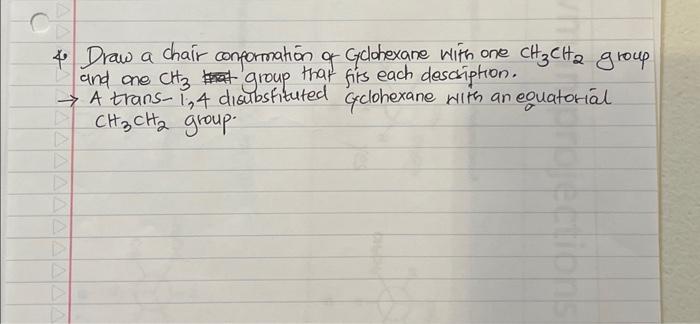 Draw a chair conformation of Cyclohexane with one CH3CH2 group
and one CH3 group that fits each description.
→ A trans-1,4 disubstituted cyclohexane with an equatorial
CH3CH2 group.